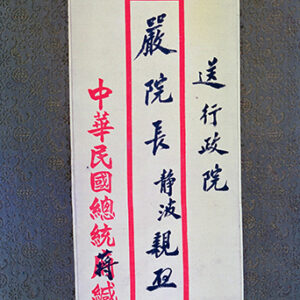 送行政院
嚴院長静波親啟
中華民國總統蔣緘